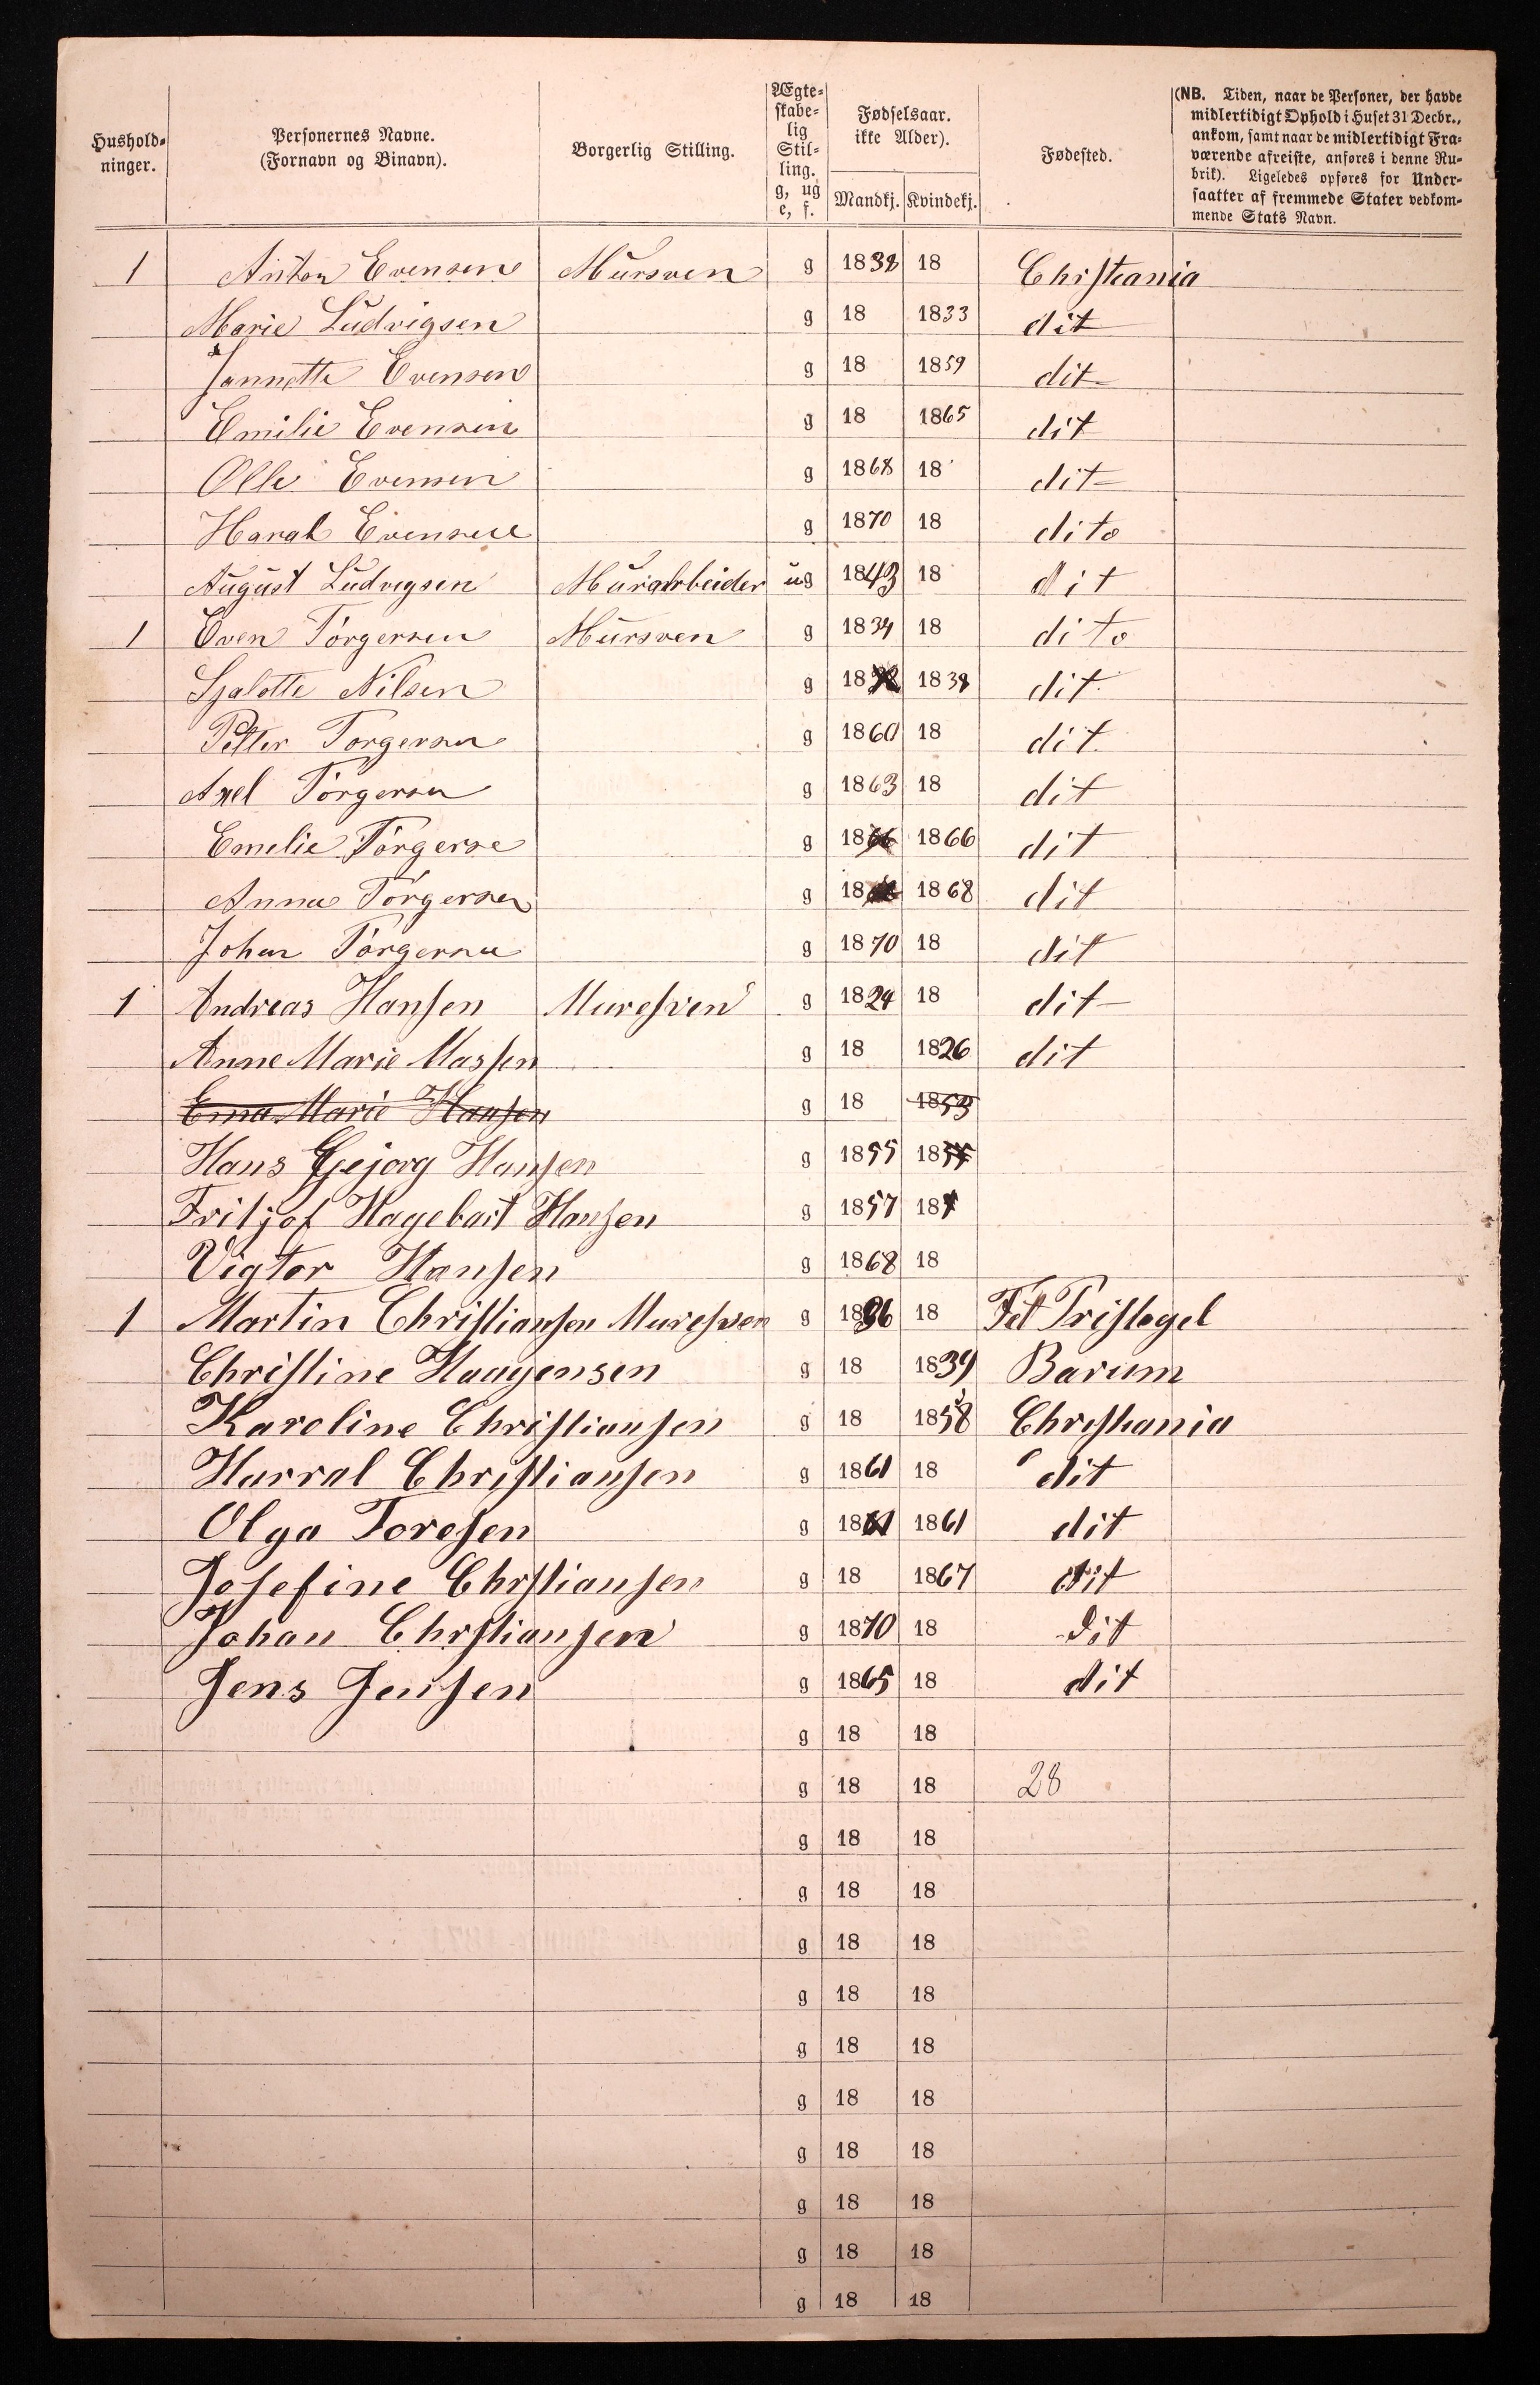 Hushold-
ninger.
Personernes Navne.
(Fornavn og Binavn).
Borgerlig Stilling.
Ægte-
skabe-
lig
Stil-
ling.
g, ug
e, f.
Fødselsaar.
ikke Alder).
Mandkj. Kvindekj.
Fødested.
(NB. Tiden, naar de Personer, der havde
midlertidigt Ophold i Huset 31 Decbr.,
ankom, samt naar de midlertidigt Fra-
værende afreiste, anføres i denne Ru-
brik). Ligeledes opføres for Under-
saatter af fremmede Stater vedkom-
mende Stats Navn.
1 Anton Evensen Mursven g 1838 18 Christania
Marie Ludvigsen g 18 1833 dit
Jannette Evensen g 18 1859 dit
Emilie Evensen g 18 1865 dit
Olle Evensen g 1868 18 dit
Haral Evensen g 1870 18 dito
August Ludvigsen Murarbeider ug 1843 18 dit
1 Even Torgersen Mursven g 1834 18 dito
Sjalotte Nilsen g 18 1839 dit
Petter Torgersen g 1860 18 dit
Axel Torgersen g 1863 18 dit
Emelie Torgerse g 1866 1866 dit
Anna Torgersen g 18 1868 dit
Johan Torgersen g 1870 18 dit
1 Andreas Hansen Muresven g 1824 18 dit
Anne Marie Massen g 18 1826 dit
Ema Marie Hansen g 18 1853
Hans Gejorg Hansen g 1855 1855
Fritjof Hagebart Hansen g 1857 18
Vigtor Hansen g 1868 18
1 Martin Christiansen Muresven g 1836 18 Fet Pristegel
Christine Haagensen g 18 1839 Barum
Karoline Christiansen g 18 1858 Christiania
Harral Christiansen g 1861 18 dit
Olga Toresen g 1861 1861 dit
Josefine Chrstiansen g 18 1867 dit
Johan Chrstiansen g 1870 18 dit
Jens Jensen g 1865 18 dit
g 18 18
g 18 18 28
g 18 18
g 18 18
g 18 18
g 18 18
g 18 18
g 18 18
g 18 18
g 18 18
g 18 18
g 18 18